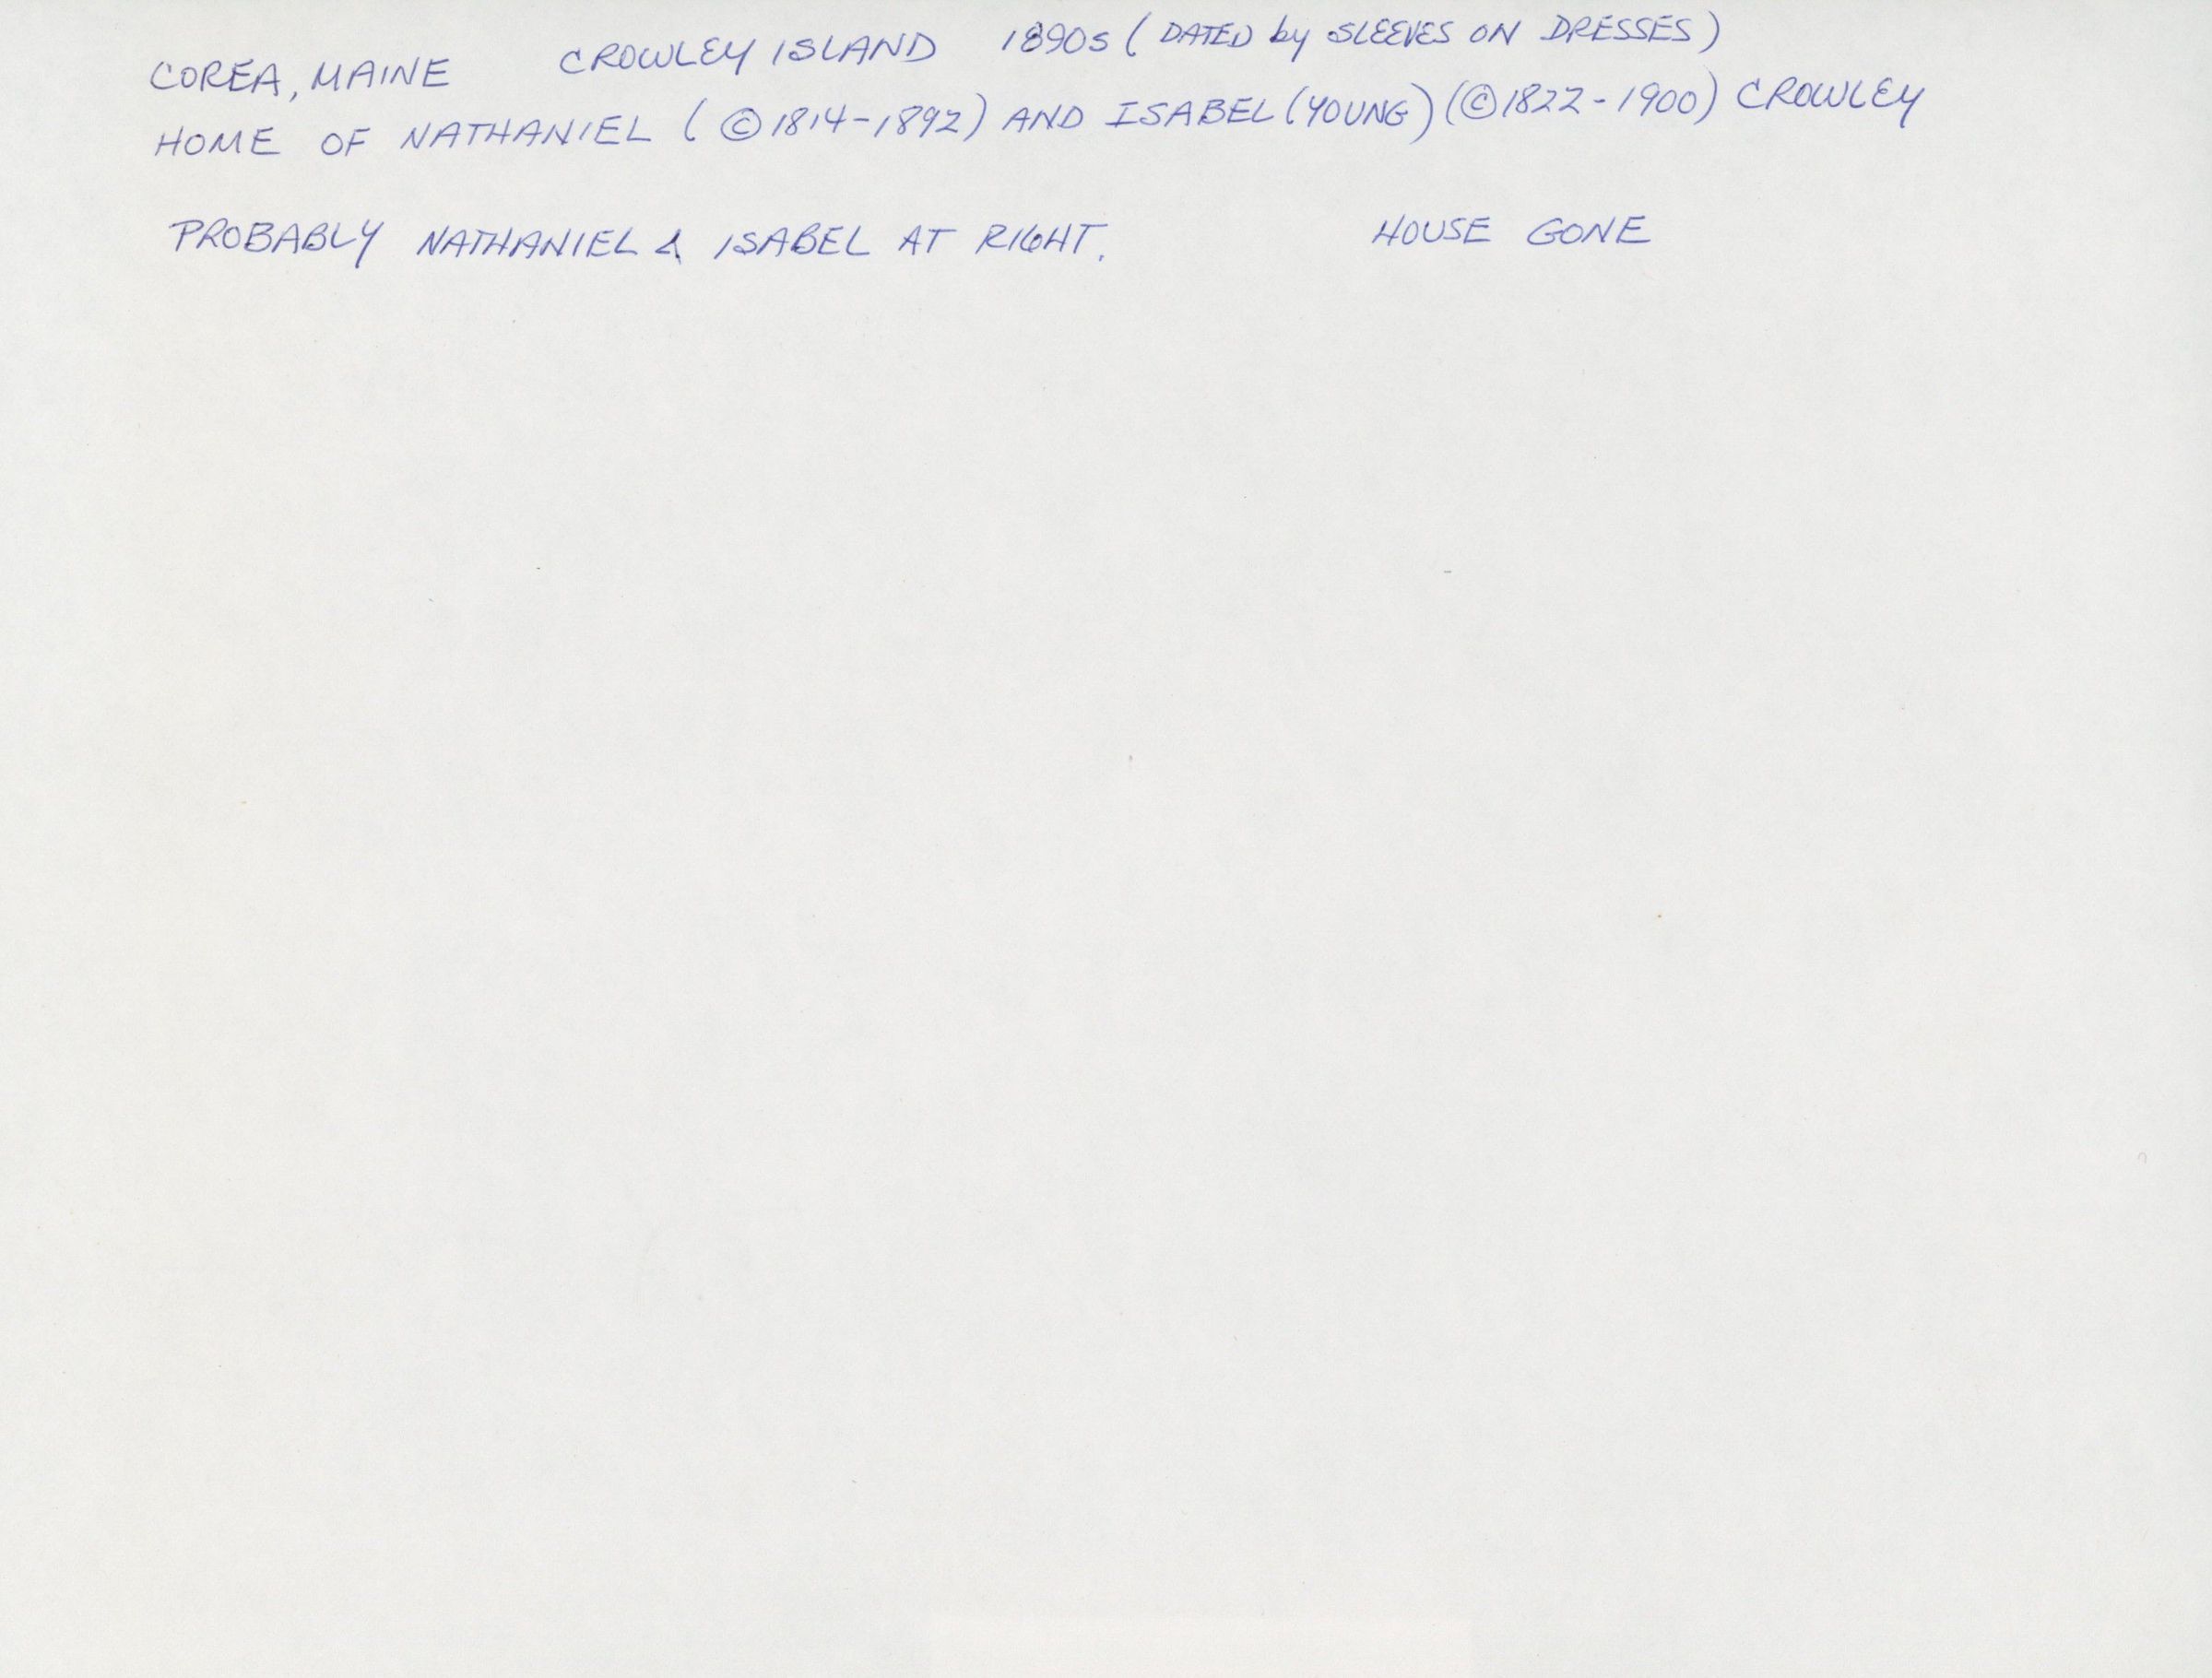 COREA, MAINE CROWLEY ISLAND 1890s (DATED by SLEEVES ON DRESSES)
HOME OF NATHANIEL (©1814-1892) AND ISABEL (YOUNG) (©1822-1900) CROWLEY
PROBABLY NATHANIEL & ISABEL AT RIGHT. HOUSE GONE